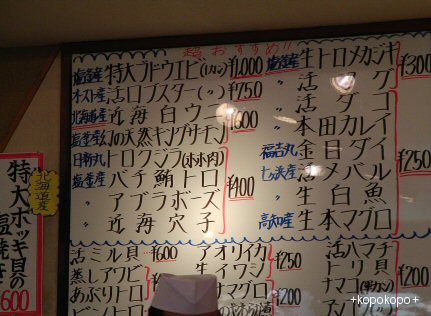 超おすすめ!!
塩釜産 特大ブドウエビ(1カン) ¥1,000
オスト産 活ロブスター(〃) ¥750
北海道産 近海白ウニ ¥600
塩釜産 幻の天然キングサモン
日新丸 トロクジラ(ホホ肉)
塩釜産 バチ鮪トロ ¥400
〃 アブラボーズ
〃 近海穴子
塩釜産 生トロメカジキ ¥300
〃 活フグ
〃 活ダコ
〃 本田カレイ
福吉丸 金目ダイ ¥250
七ヶ浜産 活メバル
〃 生白魚
高知産 生本マグロ
活ミル貝 ¥600
蒸しアワビ
あぶりトロ
アオリイカ ¥250
生イワシ
ナマグロ ¥200
活ハマチ
トリ貝 ¥200
ナマコ
北海道産
特大ホッキ貝の
塩焼き
600
+kopokopo+